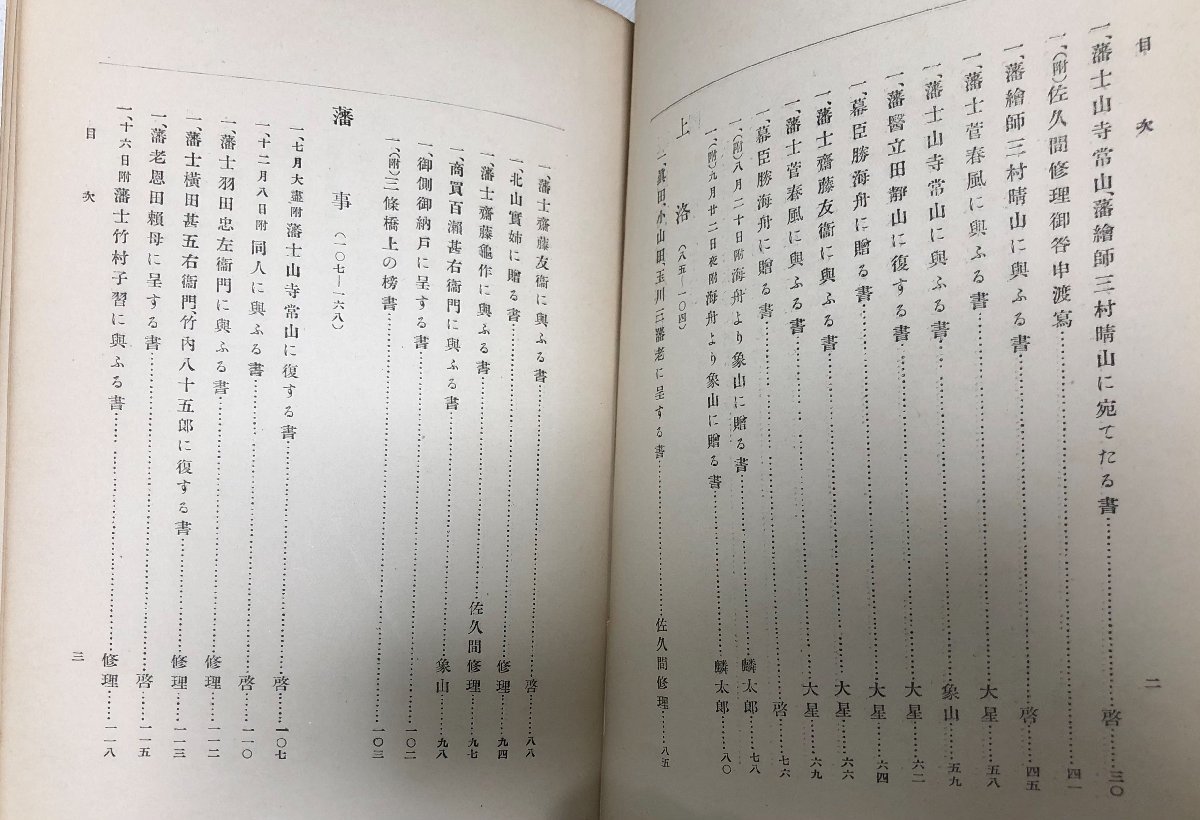 目次
一、藩士山寺常山藩繪師三村晴山に宛てたる書……啓……三〇
一、(附)佐久間修理御咎申渡寫……四一
一、藩繪師三村晴山に與ふる書……啓……四五
一、藩士菅春風に與ふる書……大星……五八
一、藩士山寺常山に與ふる書……象山……五九
一、藩醫立田靜山に復する書……大星……六二
一、幕臣勝海舟に贈る書……大星……六四
一、藩士齋藤友衞に與ふる書……大星……六六
一、藩士菅春風に與ふる書……大星……六九
一、幕臣勝海舟に贈る書……啓……七六
一、(附)八月二十日附海舟より象山に贈る書……麟太郎……七八
一、(附)九月廿二日夜附海舟より象山に贈る書……麟太郎……八〇
上洛(八五―一〇四)
一、眞田、小山田、玉川三藩老に呈する書……佐久間修理……八五
二
一、藩士齋藤友衞に與ふる書……啓……八八
一、北山實姉に贈る書……修理……九四
一、藩士齋藤龜作に與ふる書……佐久間修理……九七
一、商賈百瀨甚右衞門に與ふる書……象山……九八
一、御側御納戸に呈する書……一〇二
一、(附)三條橋上の榜書……一〇三
藩事(一〇七―一六八)
一、七月大盡附藩士山寺常山に復する書……啓……一〇七
一、十二月八日附同人に與ふる書……啓……一一〇
一、藩士羽田忠左衞門に與ふる書……修理……一一二
一、藩士橫田甚五右衞門、竹內八十五郎に復する書……修理……一一三
一、藩老恩田賴母に呈する書……啓……一一五
一、十六日附藩士竹村子習に與ふる書……修理……一一八
目次
三